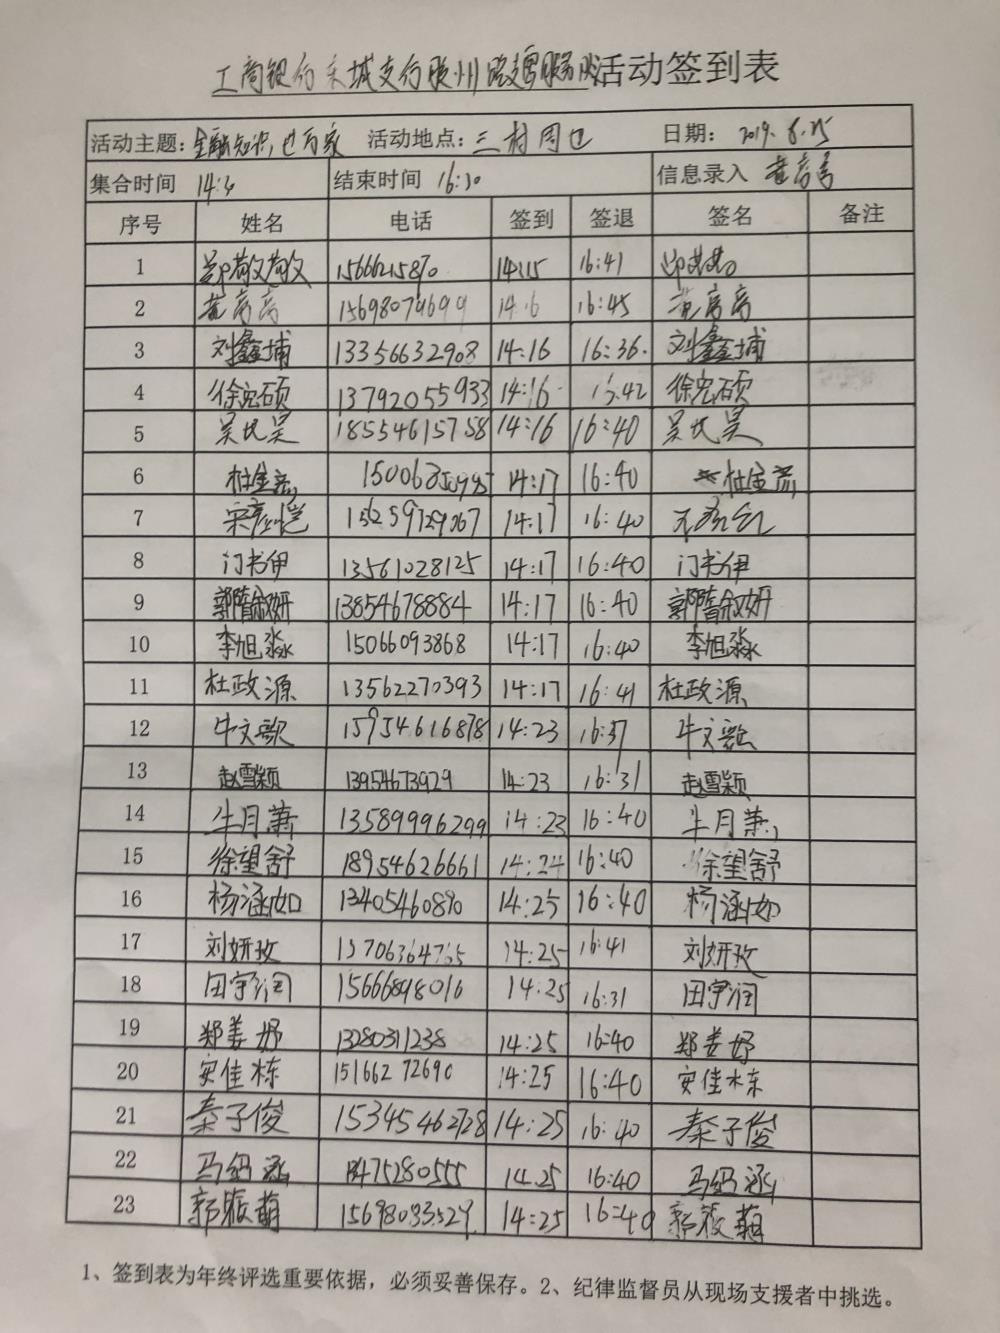 工商银行东城支行胶州路志愿服务队活动签到表
活动主题：金融知识进万家 活动地点：三村周边 日期：2019.6.25
集合时间 14:30 结束时间 16:30 信息录入
序号 姓名 电话 签到 签退 签名 备注
1 郑敬敬 15666215870 14:15 16:41
2 15698079699 14:16 16:45
3 刘鑫埔 13356632908 14:16 16:36. 刘鑫埔
4 徐宛硕 13792055933 14:16 16:42 徐宛硕
5 吴民昊 18554615758 14:16 16:40 吴民昊
6 14:17 16:40
7 宋彦恺 14:17 16:40
8 门书伊 13561028125 14:17 16:40 门书伊
9 郭隋叙妍 13854678884 14:17 16:40 郭隋叙妍
10 李旭淼 15066093868 14:17 16:40 李旭淼
11 杜政源 13562270393 14:17 16:41 杜政源
12 牛文歌 15954616878 14:23 16:37 牛文歌
13 赵雪颖 13954673929 14:23 16:31 赵雪颖
14 牛月萧 13589996299 14:23 16:40 牛月萧
15 徐望舒 18954626661 14:24 16:40 徐望舒
16 杨涵如 13405460890 14:25 16:40 杨涵如
17 刘妍玫 14:25 16:41 刘妍玫
18 田宇润 15666898016 14:25 16:31 田宇润
19 郑姜妤 13280311238 14:25 16:40 郑姜妤
20 安佳栋 15166272690 14:25 16:40 安佳栋
21 秦子俊 15345462728 14:25 16:40 秦子俊
22 马绍涵 13475280555 14:25 16:40 马绍涵
23 郭筱萌 15698033529 14:25 16:40 郭筱萌
1、签到表为年终评选重要依据，必须妥善保存。2、纪律监督员从现场支援者中挑选。